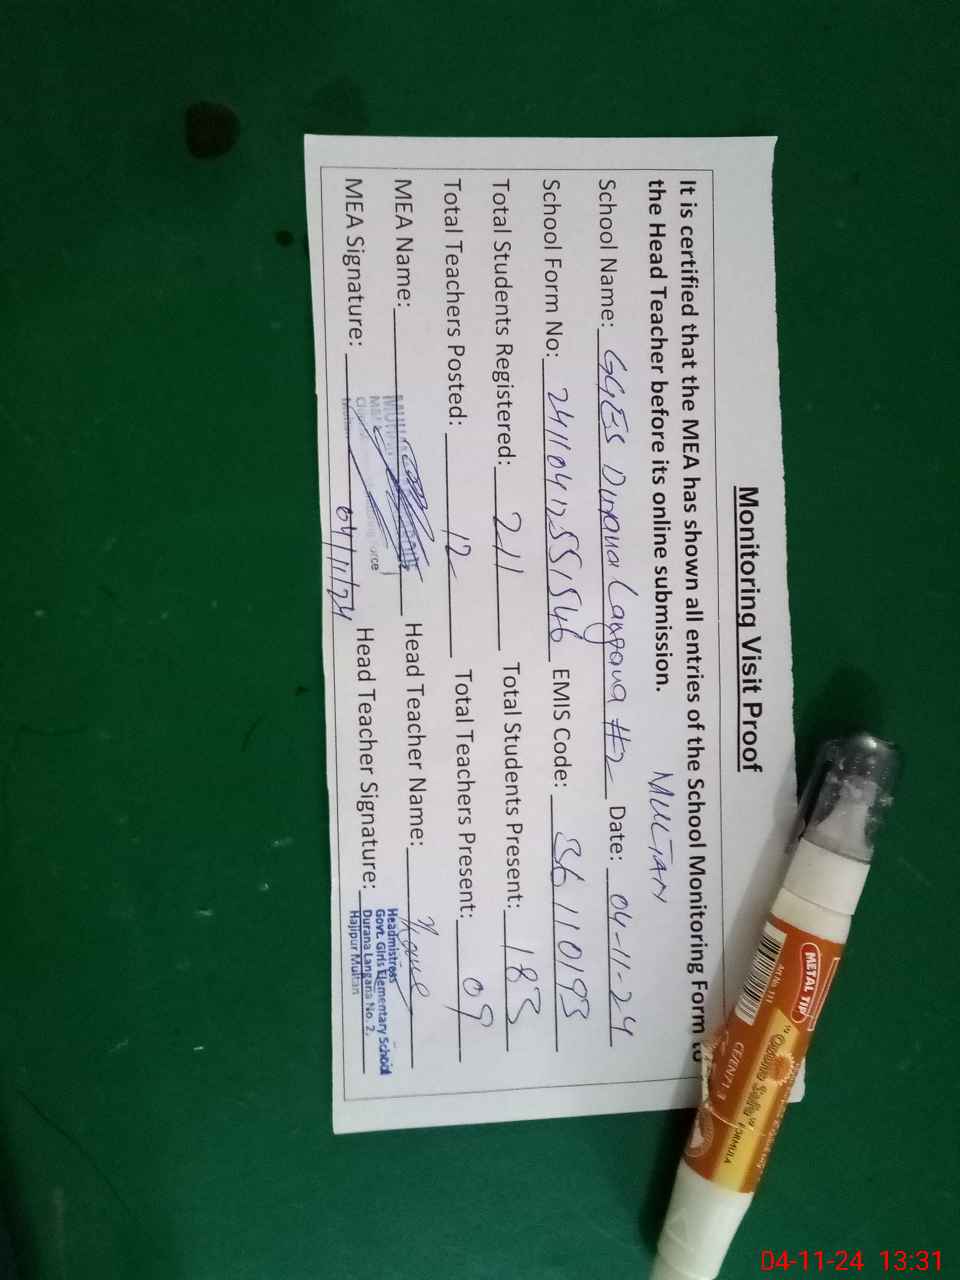 Monitoring Visit Proof
It is certified that the MEA has shown all entries of the School Monitoring Form to
the Head Teacher before its online submission. MULTAN
School Name: GGES Durana Langana #2 Date: 04-11-24
School Form No: 24110412551546 EMIS Code: 36110193
Total Students Registered: 211 Total Students Present: 183
Total Teachers Posted: 12 Total Teachers Present: 09
MEA Name: Head Teacher Name:
MEA Signature: 04/11/24 Head Teacher Signature:
Headmistress
Govt. Girls Elementary School
Durana Langana No. 2,
Hajipur Multan
METAL TIP
Art No. 111
"Ozone Safe" FORMULA
04-11-24 13:31